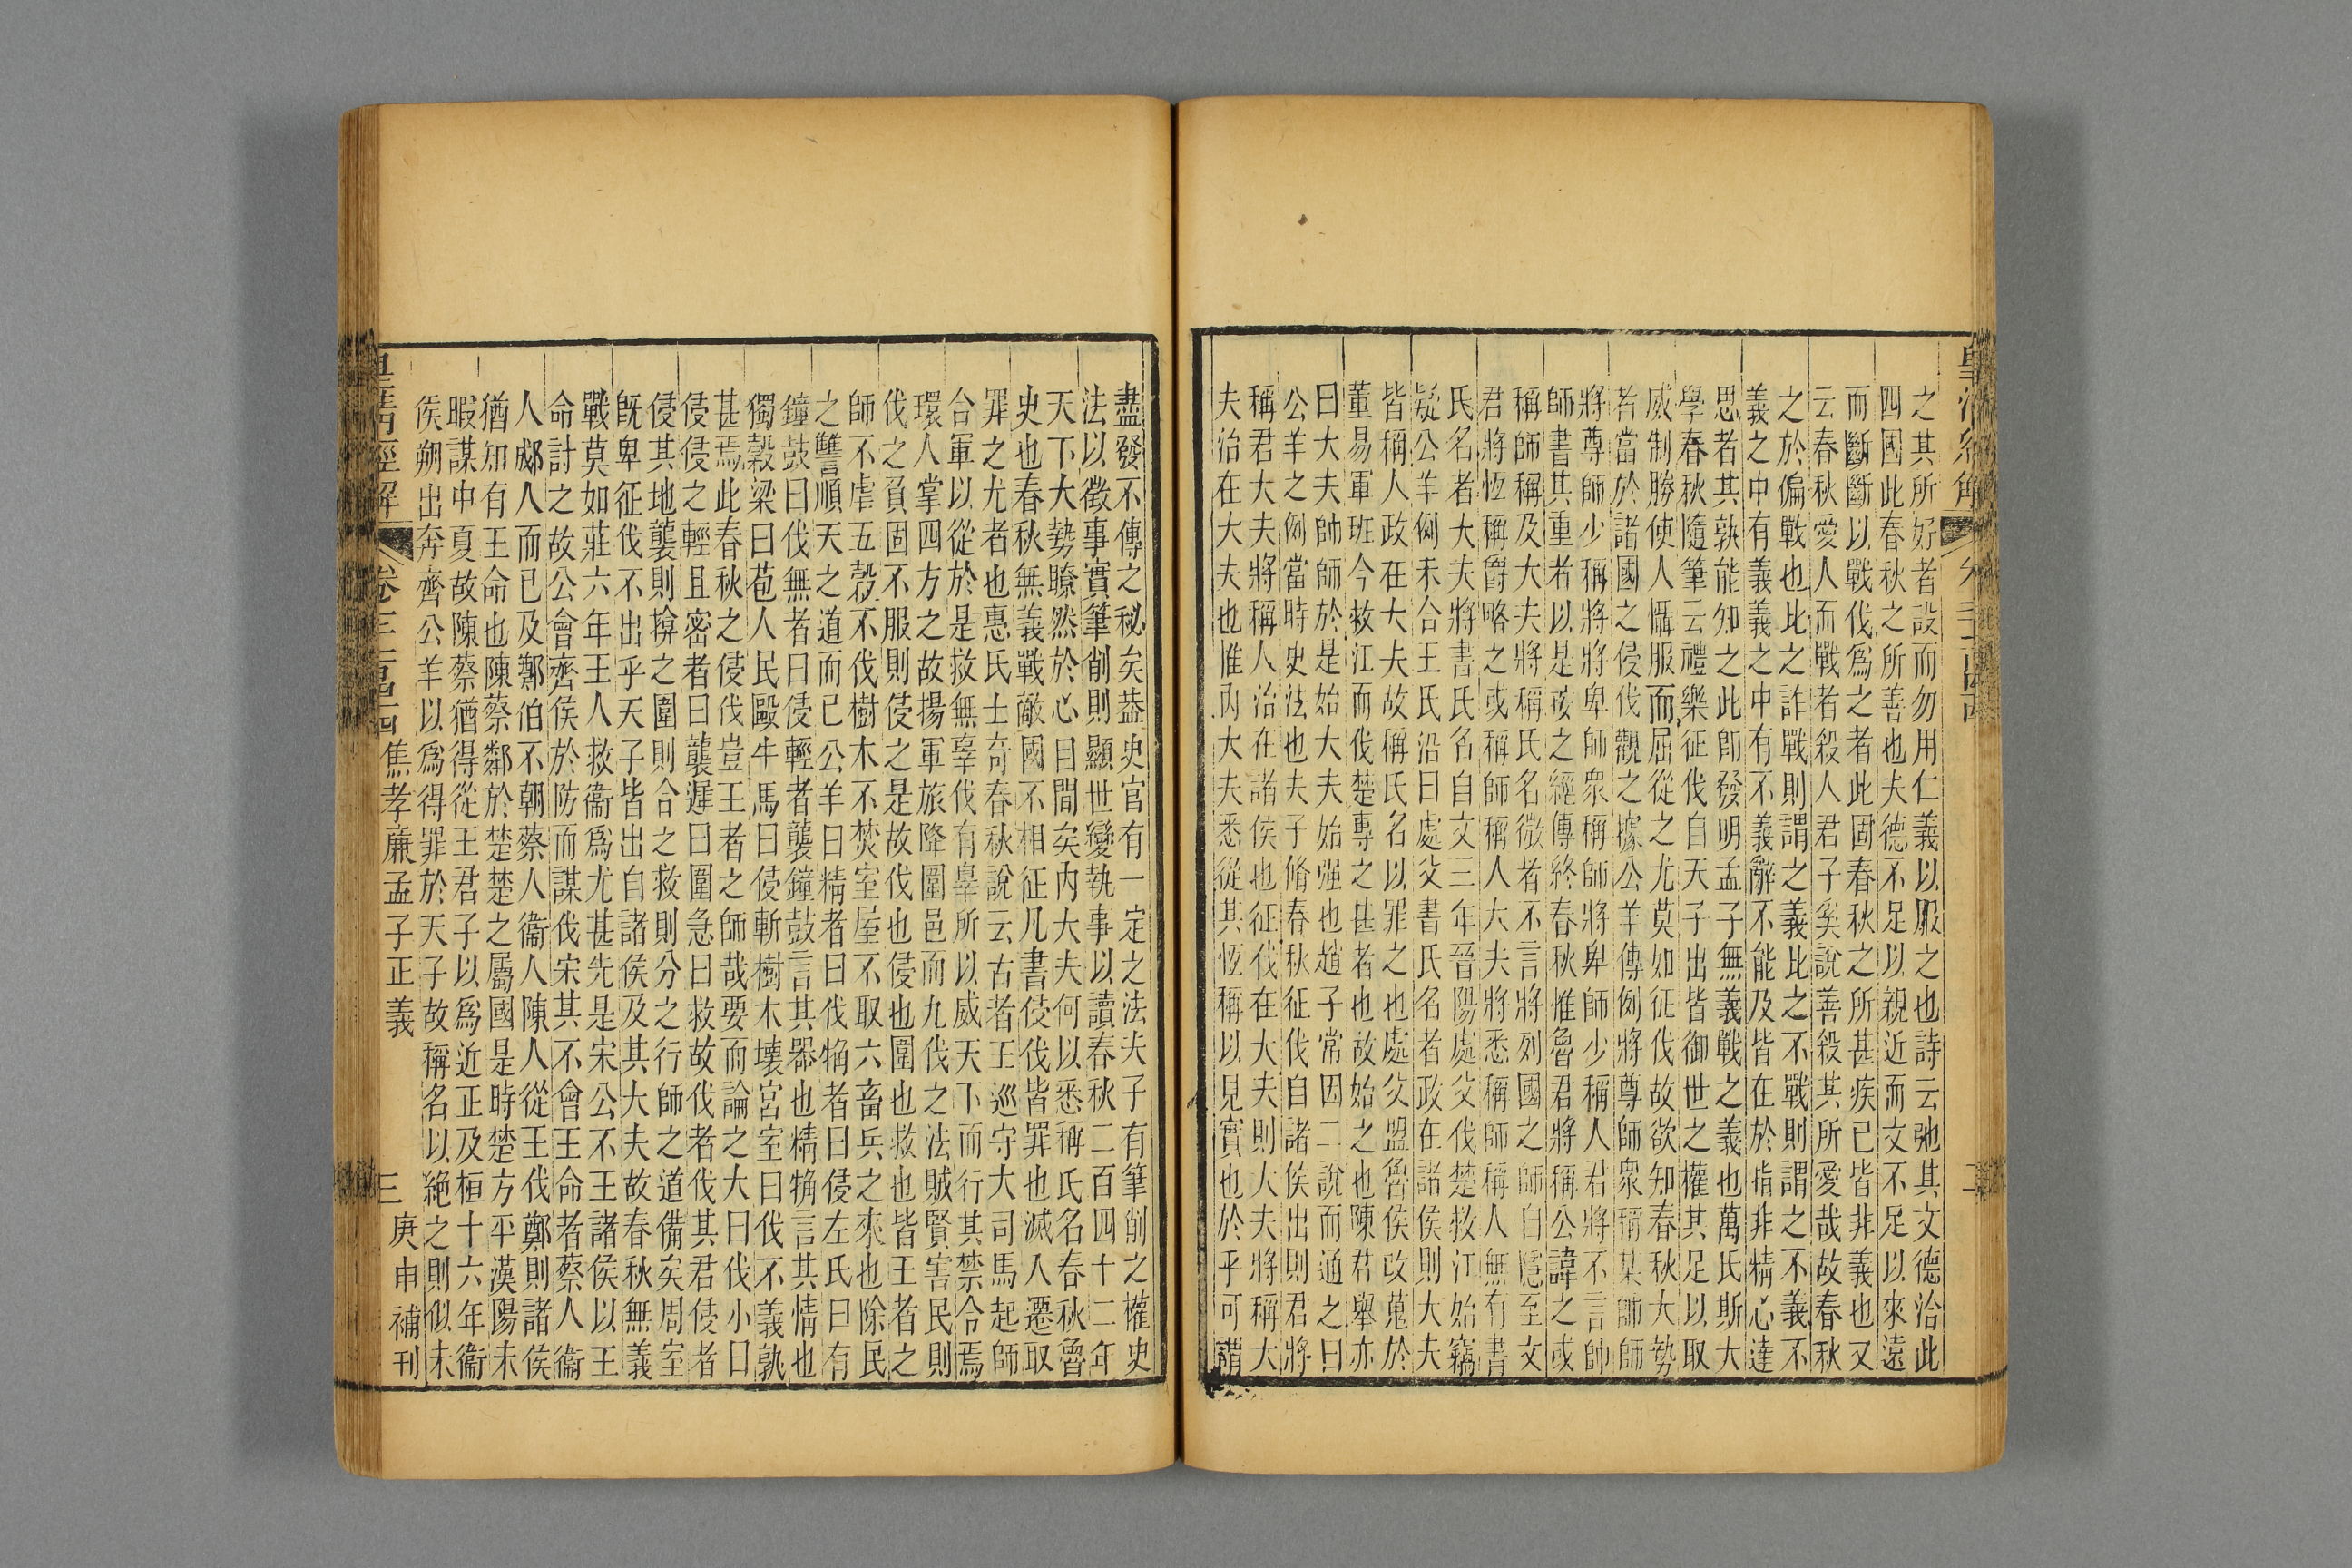 之其所好者設而勿用仁義以服之也詩云弛其文德洽此
四國此春秋之所善也夫德不足以親近而文不足以來遠
而斷斷以戰伐爲之者此固春秋之所甚疾已皆非義也又
云春秋愛人而戰者殺人君子奚說善殺其所愛哉故春秋
之於偏戰也比之詐戰則謂之義比之不戰則謂之不義不
義之中有義義之中有不義辭不能及皆在於指非精心達
思者其孰能知之此卽發明孟子無義戰之義也萬氏斯大
學春秋隨筆云禮樂征伐自天子出皆御世之權其足以取
威制勝使人懾服而屈從之尤莫如征伐故欲知春秋大勢
者當於諸國之侵伐觀之據公羊傳例將尊師衆稱某師師
將尊師少稱將將卑師衆稱師將卑師少稱人君將不言帥
師書其重者以是故之經傳終春秋惟魯君將稱公諱之或
稱師稱及大夫將稱氏名微者不言將列國之師自隱至文
君將恆稱爵略之或稱師稱人大夫將悉稱師稱人無有書
氏名者大夫將書氏名自文三年晉陽處父伐楚救江始竊
疑公羊例未合王氏沿曰處父書氏名者政在諸侯則大夫
皆稱人政在大夫故稱氏名以罪之也處父盟魯侯改蒐於
董易軍班今救江而伐楚專之甚者也故始之也陳君舉亦
曰大夫帥師於是始大夫始强也趙子常因二說而通之曰
公羊之例當時史法也夫子脩春秋征伐自諸侯出則君將
稱君大夫將稱人治在諸侯也征伐在大夫則大夫將稱大
夫治在大夫也惟內大夫悉從其恆稱以見實也於乎可謂
盡發不傳之秘矣葢史官有一定之法夫子有筆削之權史
法以徵事實筆削則顯世變執事以讀春秋二百四十二年
天下大勢瞭然於心目閒矣內大夫何以悉稱氏名春秋魯
史也春秋無義戰敵國不相征凡書侵伐皆罪也滅人遷取
罪之尤者也惠氏士奇春秋說云古者王巡守大司馬起師
合軍以從於是救無辜伐有辠所以威天下而行其禁令焉
環人掌四方之故揚軍旅降圍邑而九伐之法賊賢害民則
伐之負固不服則侵之是故伐也侵也圍也救也皆王者之
師不虐五穀不伐樹木不焚室屋不取六畜兵之來也除民
之讐順天之道而已公羊曰精者曰伐觕者曰侵左氏曰有
鐘鼓曰伐無者曰侵輕者襲鐘鼓言其器也精觕言其情也
獨穀梁曰苞人民毆牛馬曰侵斬樹木壞宮室曰伐不義孰
甚焉此春秋之侵伐豈王者之師哉要而論之大曰伐小曰
侵侵之輕且密者曰襲遲曰圍急曰救故伐者伐其君侵者
侵其地襲則揜之圍則合之救則分之行師之道備矣周室
旣卑征伐不出乎天子皆出自諸侯及其大夫故春秋無義
戰莫如莊六年王人救衞爲尤甚先是宋公不王諸侯以王
命討之故公會齊侯於防而謀伐宋其不會王命者蔡人衞
人郕人而已及鄭伯不朝蔡人衞人陳人從王伐鄭則諸侯
猶知有王命也陳蔡鄰於楚楚之屬國是時楚方平漢陽未
暇謀中夏故陳蔡猶得從王君子以爲近正及桓十六年衞
侯朔出奔齊公羊以爲得罪於天子故稱名以絕之則似未
皇淸經解
焦孝廉孟子正義
三
庚申補刊